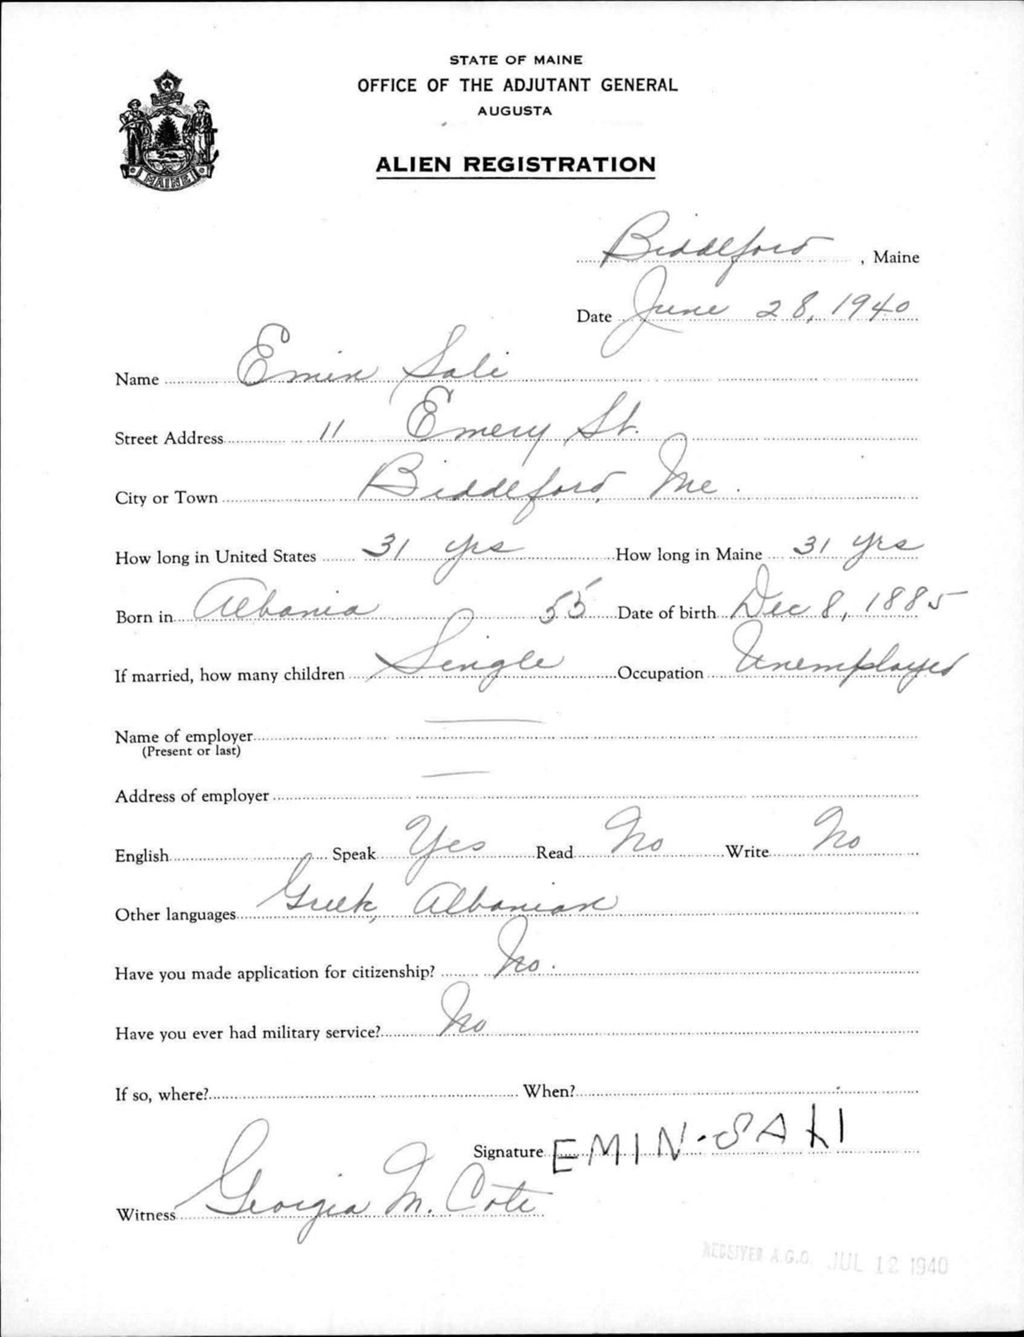 STATE OF MAINE
OFFICE OF THE ADJUTANT GENERAL
AUGUSTA
ALIEN REGISTRATION
MAINE
Biddeford, Maine
Date June 28, 1940
Name Emin Sali
Street Address 11 Emery St.
City or Town Biddeford, Me.
How long in United States 31 yrs How long in Maine 31 yrs
Born in Albania 55 Date of birth Dec 8, 1885
If married, how many children Single Occupation Unemployed
Name of employer —
(Present or last)
Address of employer —
English Speak Yes Read No Write No
Other languages Greek, Albanian
Have you made application for citizenship? No.
Have you ever had military service? No
If so, where? When?
Signature EMIN-SALI
Witness Georgia M. Cote
RECEIVED A.G.O. JUL 12 1940